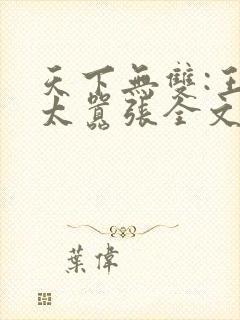 天下無雙:王
太囂張全文
葉偉